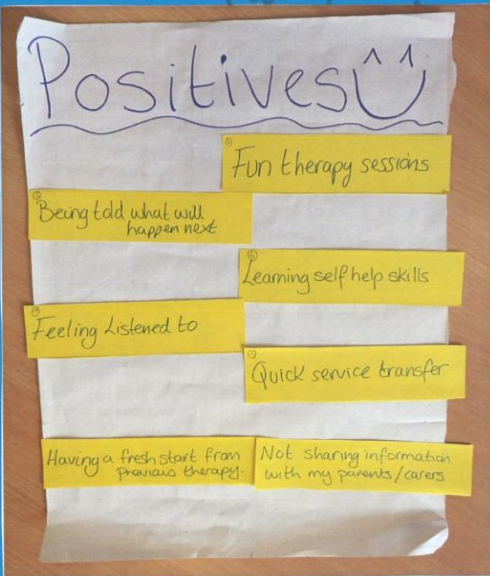 Positives
Fun therapy sessions
Being told what will
happen next
Learning self help skills
Feeling Listened to
Quick service transfer
Having a fresh start from
previous therapy.
Not sharing information
with my parents/carers